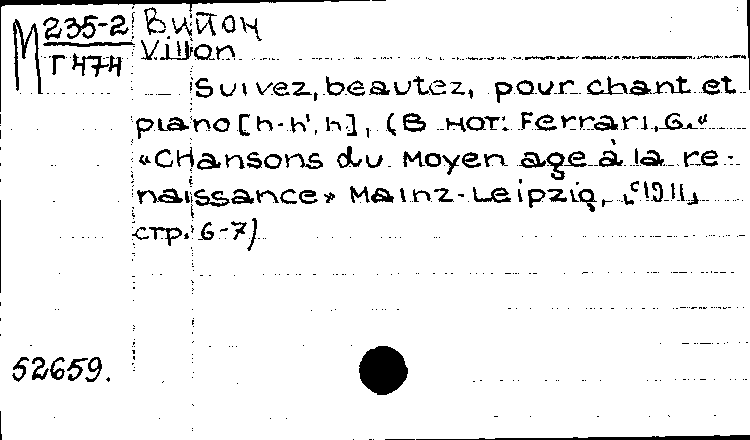 М 235-2 Вийон
Г 474 Villon
Suivez, beautez, pour chant et
piano [h-h', h], (В нот: Ferrari, G. "
«Chansons du Moyen age à la re-
naissance» Mainz-Leipzig, [c1911],
стр. 6-7)
52659.